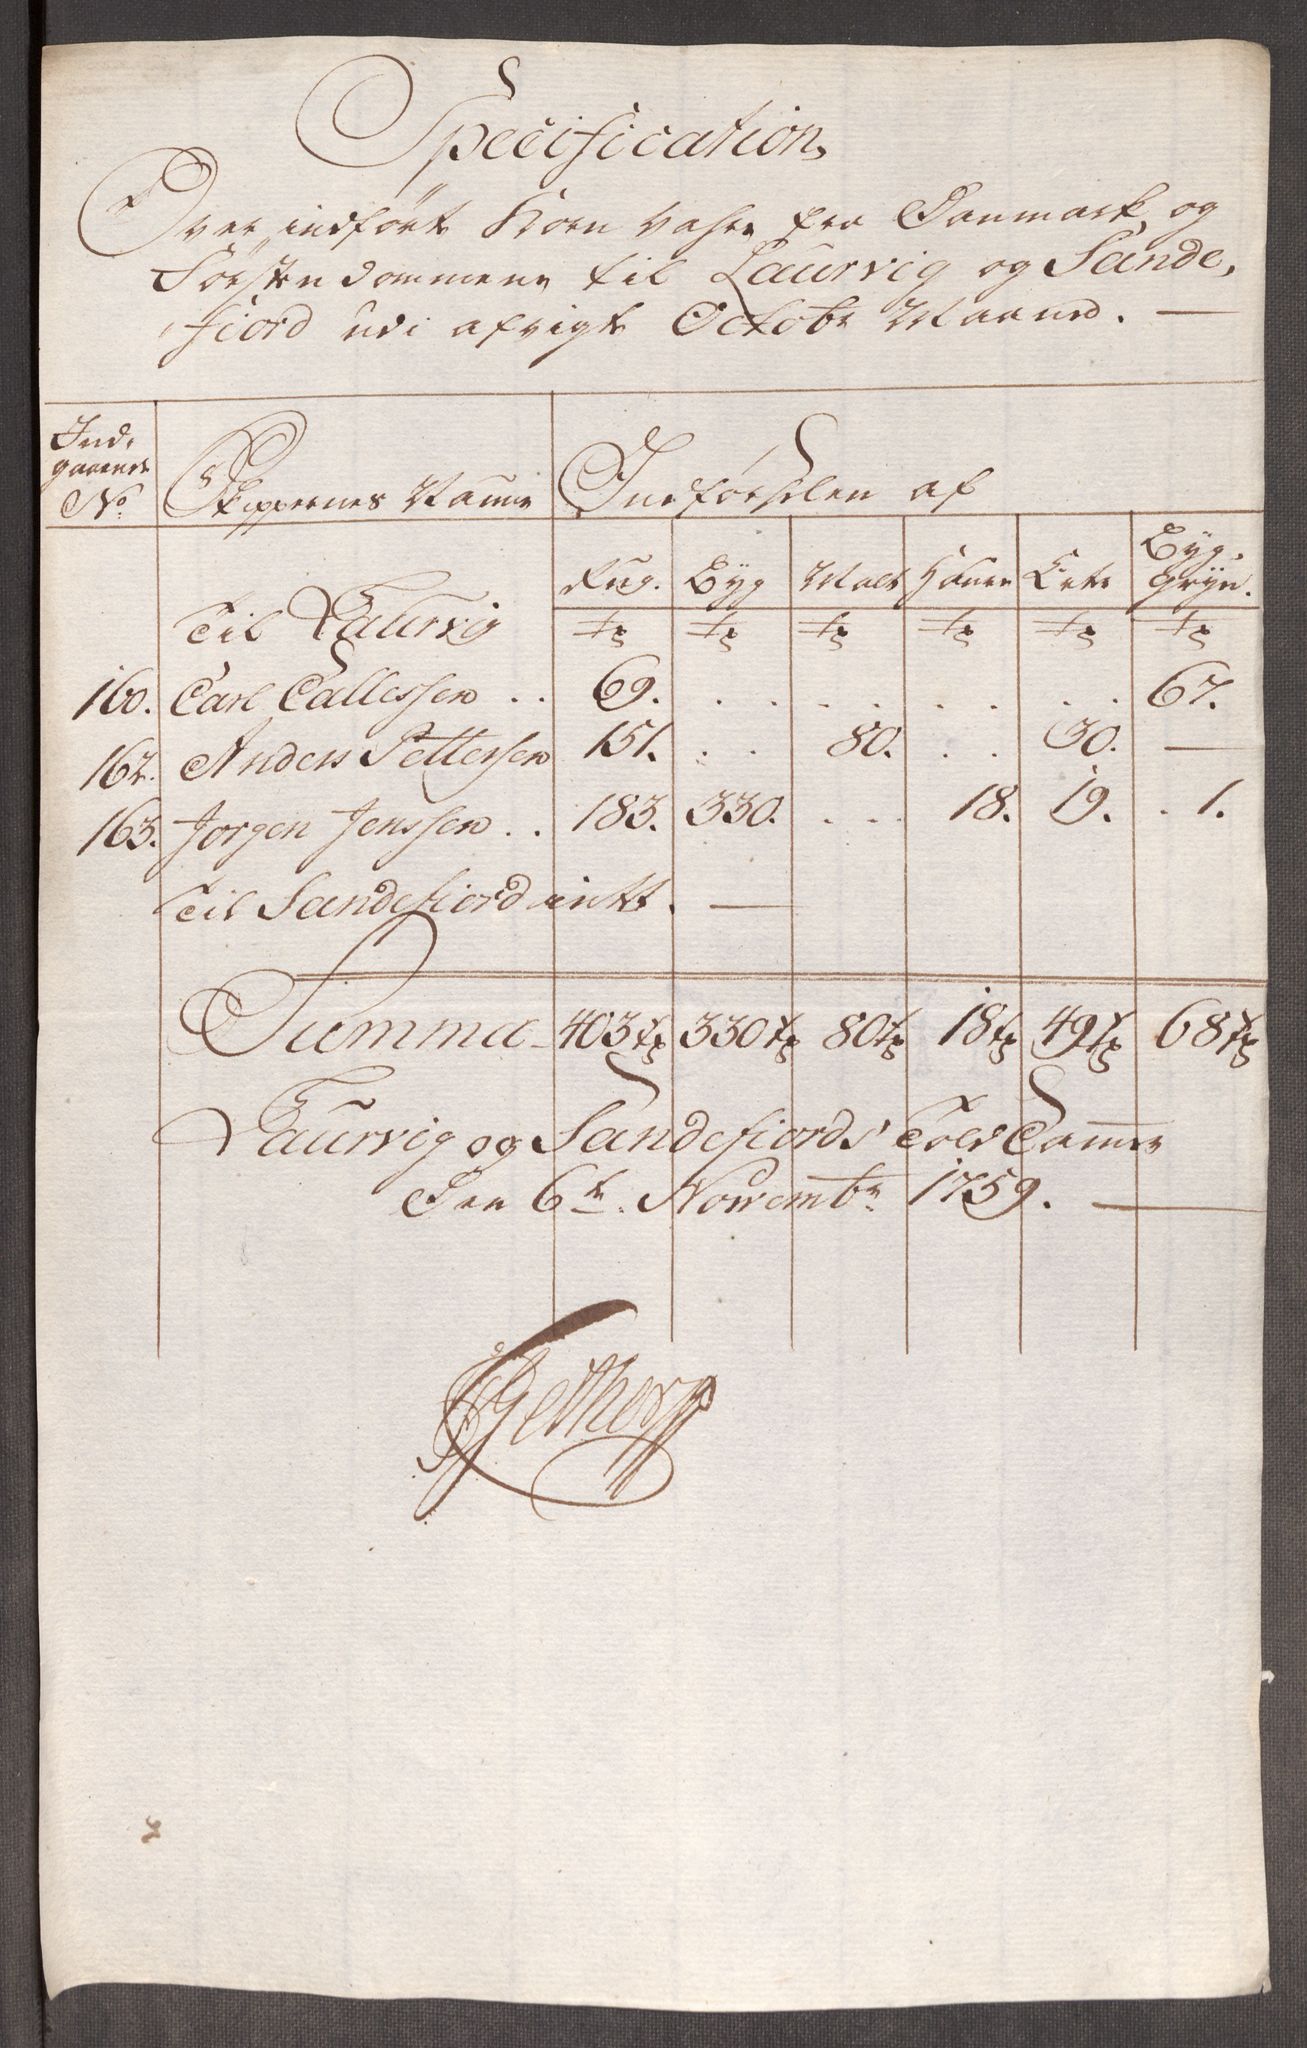 Specification
Over indført Korn Vahre fra Danmark og
Førstendommene til Laurvig og Sande,
fiord udi afvigte Octobr Maaned. —
Ind,
gaaende
No
Skippernes Nafne
Indførselen af
Rug. Byg Malt Hafre Erter Byg,
gryn.
Til Laurvig tr tr tr tr tr tr
160. Carl Callessen . . 69. . . . . . . . . 67.
162. Anders Pettersen 151. . . 80. . . 30. —
163. Jørgen Jenssen . . 183. 330. . . . 18. 19. . 1.
Til Sandefiord intet. —
Summa 403 tr 330 tr 80 tr 18 tr 49 tr 68 tr
Laurvig og Sandefiords Told Cammer
Den 6te Novembr 1759. —